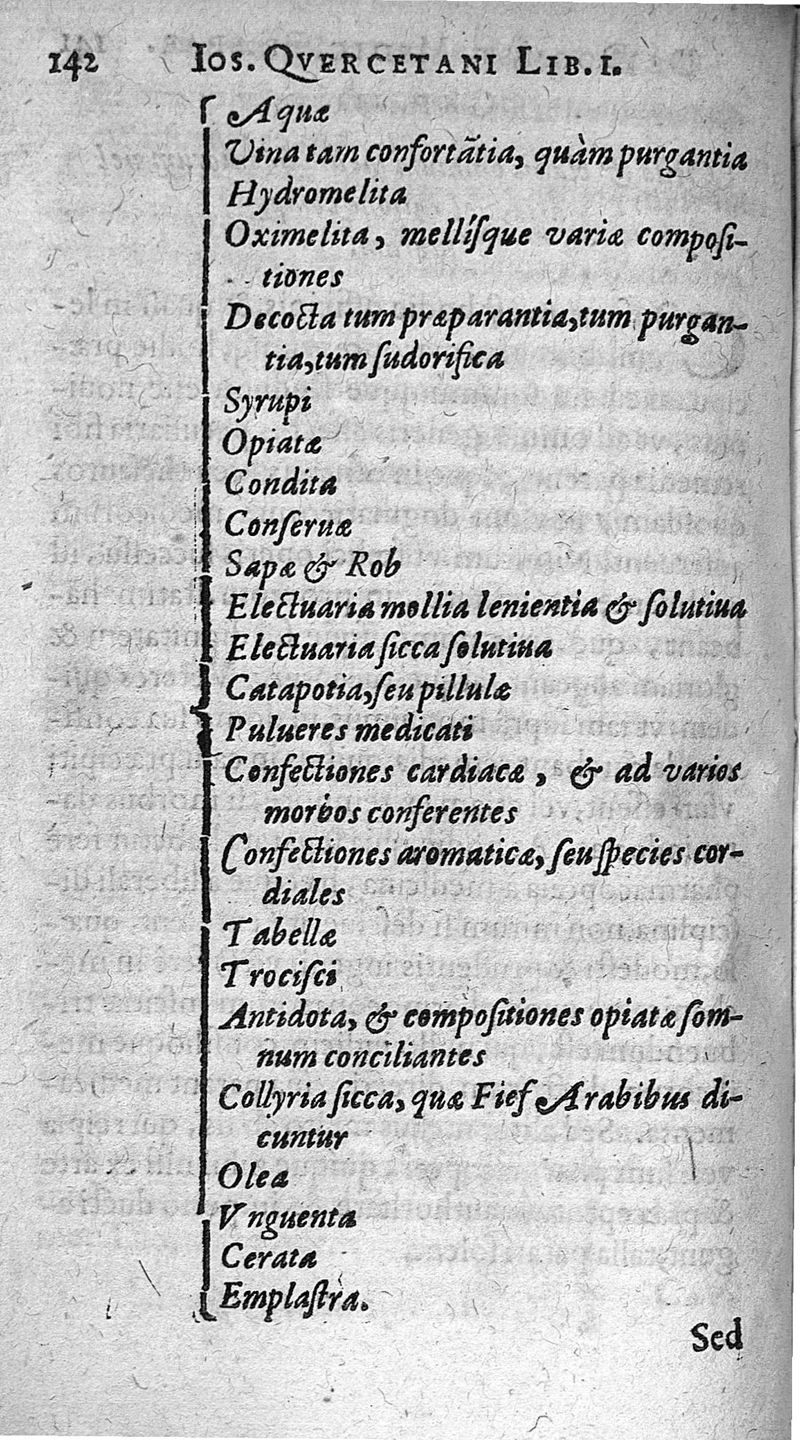 142 IOS. QVERCETANI LIB. I.
Aquæ
Vina tam confortãtia, quàm purgantia
Hydromelita
Oximelita, mellíſque variæ compoſi-
tiones
Decocta tum præparantia, tum purgan-
tia, tum ſudorifica
Syrupi
Opiatæ
Condita
Conſeruæ
Sapæ & Rob
Electuaria mollia lenientia & ſolutiua
Electuaria ſicca ſolutiua
Catapotia, ſeu pillulæ
Pulueres medicati
Confectiones cardiacæ, & ad varios
morbos conferentes
Confectiones aromaticæ, ſeu ſpecies cor-
diales
Tabellæ
Trociſci
Antidota, & compoſitiones opiatæ ſom-
num conciliantes
Collyria ſicca, quæ Fief Arabibus di-
cuntur
Olea
Vnguenta
Cerata
Emplaſtra.
Sed